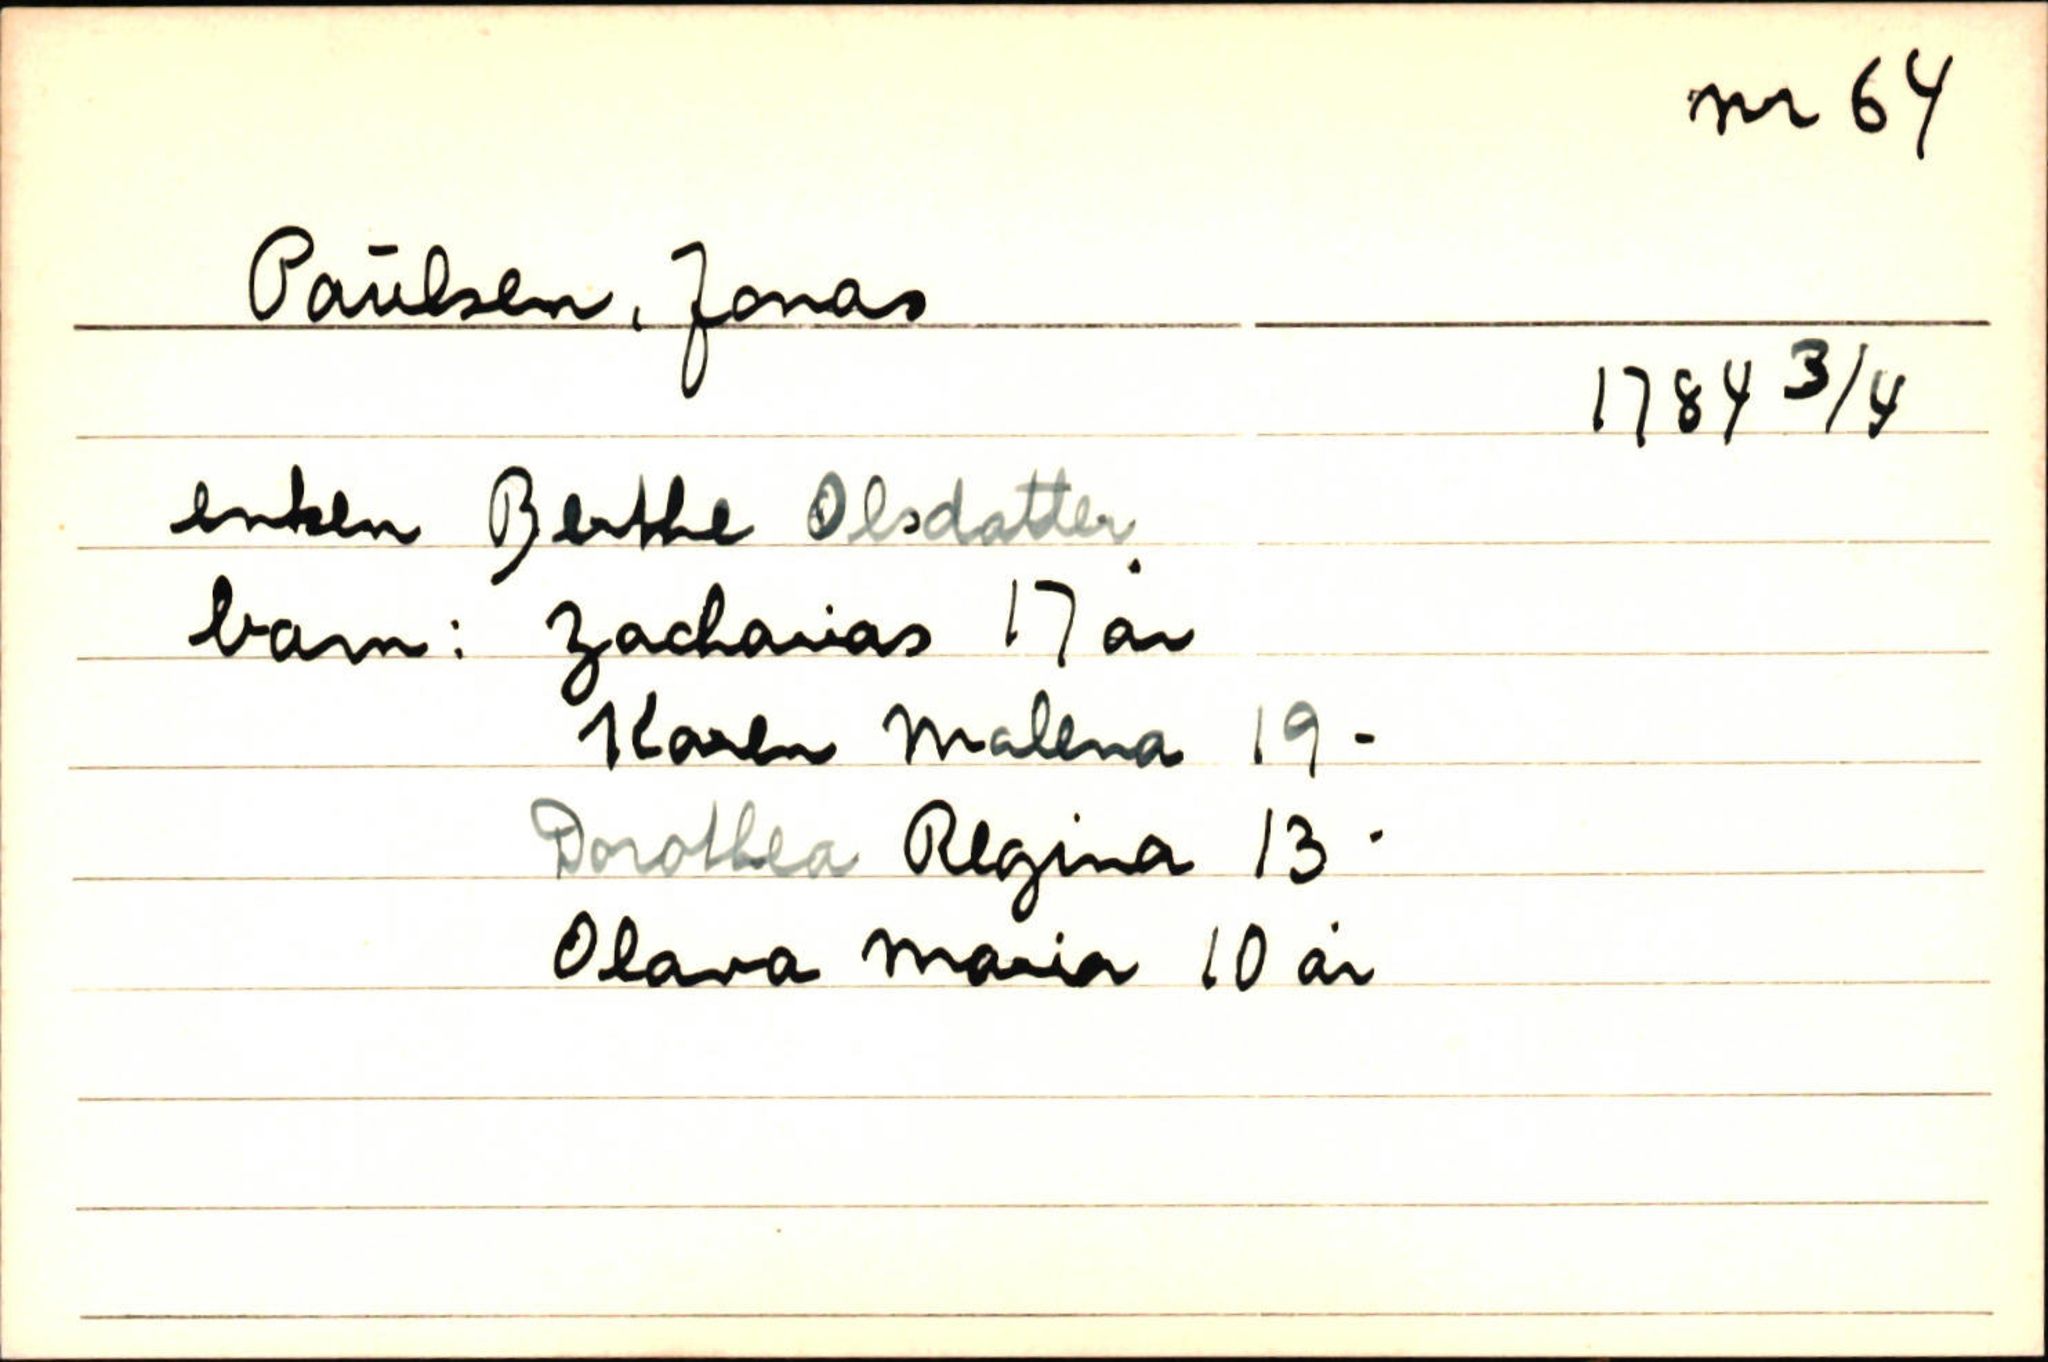 nr 64
Paulsen, Jonas
1784 3/4
enken Berthe Olsdatter
barn: Zacharias 17 år
Karen Malena 19 -
Dorothea Regina 13 -
Olava Maria 10 år